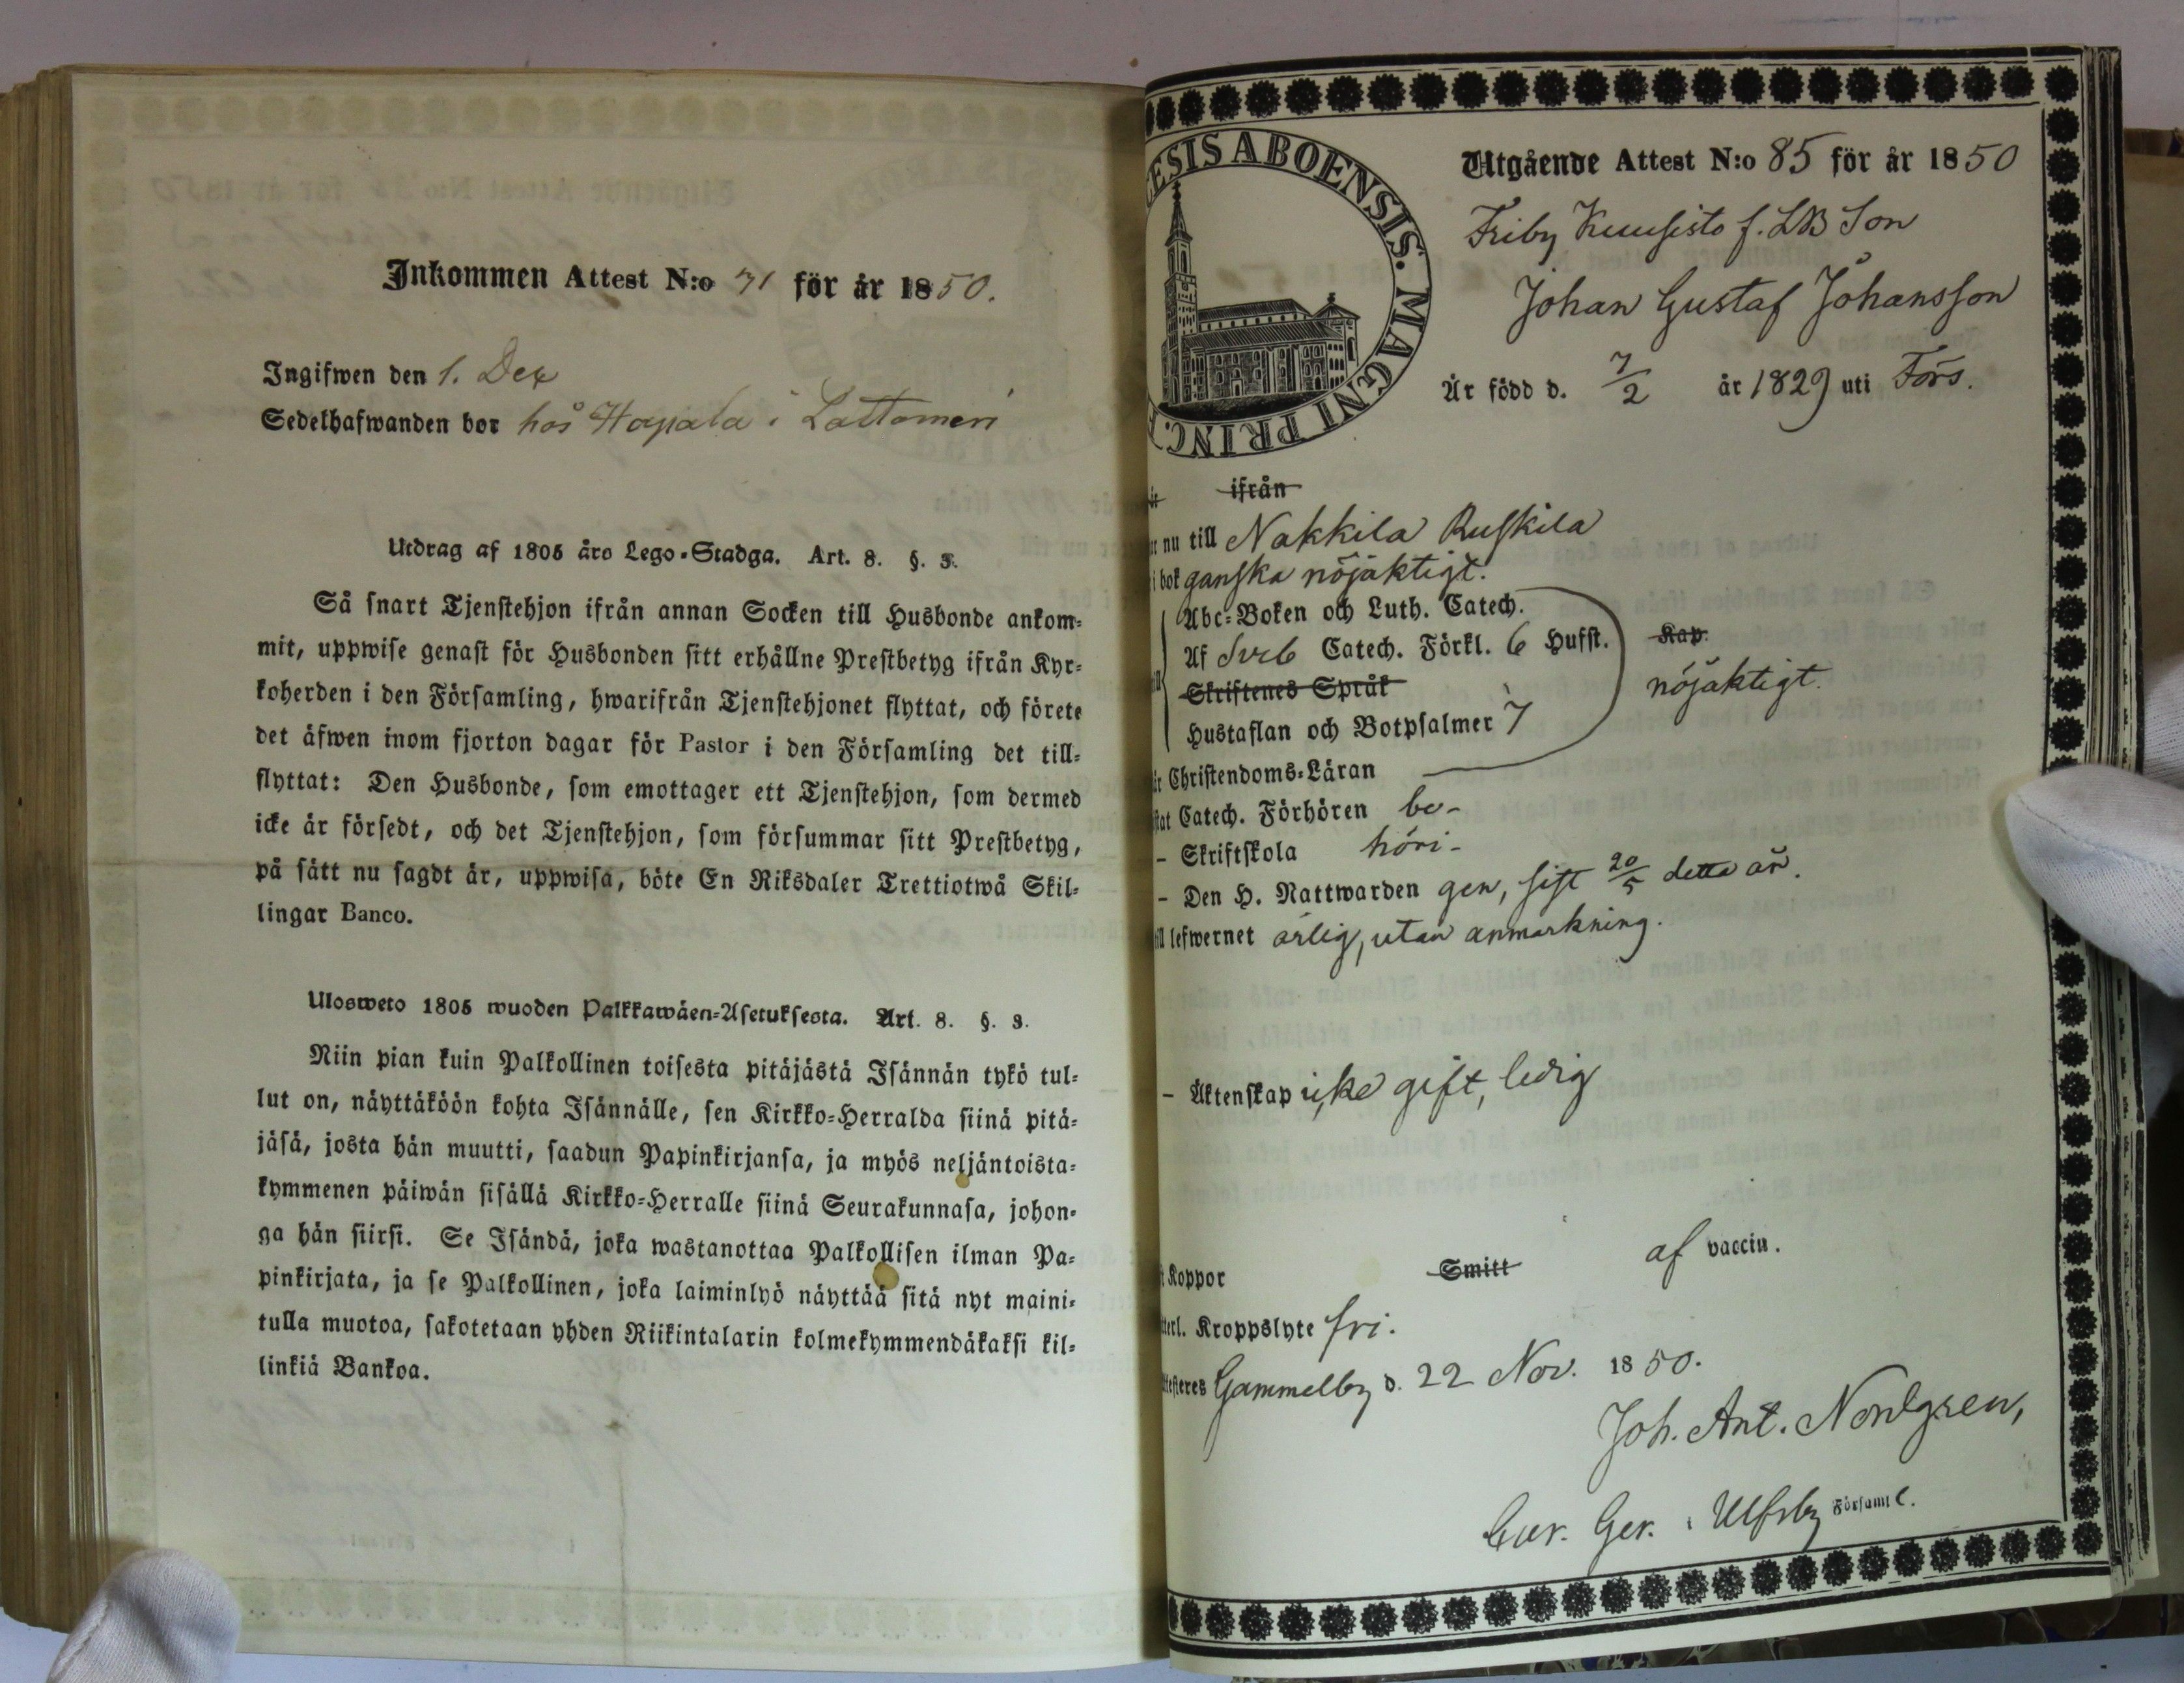 Inkommen Attest N:o 31 för år 1850.
Ingifwen den 1. Dec
Sedelhafwanden bor hos Hapala i Lattomeri
Utdrag af 1805 års Lego-Stadga. Art. 8. §. 3.
Så snart Tjenstehjon ifrån annan Socken till Husbonde ankom-
mit, uppwise genast för Husbonden sitt erhållne Prestbetyg ifrån Kyr-
koherden i den Församling, hwarifrån Tjenstehjonet flyttat, och förete
det äfwen inom fjorton dagar för Pastor i den Församling det till-
flyttat: Den Husbonde, som emottager ett Tjenstehjon, som dermed
icke är försedt, och det Tjenstehjon, som försummar sitt Prestbetyg,
på sätt nu sagdt är, uppwisa, böte En Riksdaler Trettiotwå Skil-
lingar Banco.
Ulosweto 1805 wuoden Palkkawäen-Asetuksesta. Art. 8. §. 3.
Niin pian kuin Palkollinen toisesta pitäjästä Isännän tykö tul-
lut on, näyttäköön kohta Isännälle, sen Kirkko-Herralda siinä pitä-
jäsä, josta hän muutti, saadun Papinkirjansa, ja myös neljäntoista-
kymmenen päiwän sisällä Kirkko-Herralle siinä Seurakunnasa, johon-
ga hän siirsi. Se Isändä, joka wastanottaa Palkollisen ilman Pa-
pinkirjata, ja se Palkollinen, joka laiminlyö näyttää sitä nyt maini-
tulla muotoa, sakotetaan yhden Riikintalarin kolmekymmendäkaksi kil-
linkiä Bankoa.
ESIS ABOENSIS. MAGNI PRINC.
Utgående Attest N:o 85 för år 1850
Friby Kuusisto f. LB Son
Johan Gustaf Johansson
Är född d. 7/2 år 1829 uti Förs.
ifrån
nu till Nakkila Ruskila
i bok ganska nöjaktigt.
Abc-Boken och Luth. Catech.
Af Sveb Catech. Förkl. 6 Hufst. Kap.
Skriftenes Språk nöjaktigt.
Hustaflan och Botpsalmer 7
Christendoms-Läran
Catech. Förhören be-
- Skriftskola höri-
- Den H. Nattwarden gen, sist 20/5 detta år.
lefwernet ärlig, utan anmärkning.
- Äktenskap icke gift, ledig
Koppor Smitt af vaccin.
Kroppslyte fri.
Gammelby d. 22 Nov. 1850.
Joh. Ant. Nordgren,
Cur. Ger. i Ulfsby Församl.